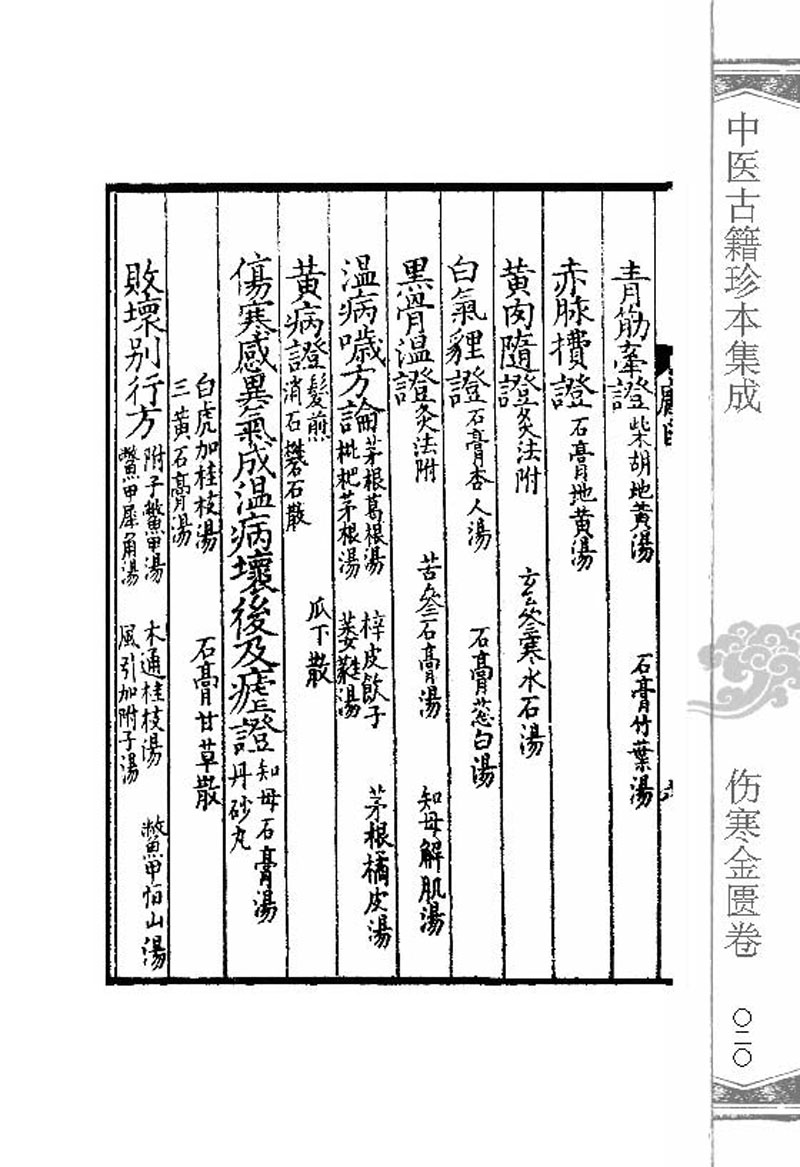 中医古籍珍本集成
伤寒金匮卷
〇二〇
青筋牽證 柴胡地黃湯 石膏竹葉湯
赤脉攢證 石膏地黃湯
黃肉隨證 灸法附 玄參寒水石湯
白氣貍證 石膏杏人湯 石膏葱白湯
黑骨溫證 灸法附 苦參石膏湯 知母解肌湯
溫病噦方論 茅根葛根湯 枇杷茅根湯 梓皮飲子 萎蕤湯 茅根橘皮湯
黃病證 髮煎 消石礬石散 瓜下散
傷寒感異氣成溫病壞後及瘧證 知母石膏湯 丹砂丸
白虎加桂枝湯 三黃石膏湯 石膏甘草散
敗壞別行方 附子鱉甲湯 鱉甲犀角湯 木通桂枝湯 風引加附子湯 鱉甲恒山湯